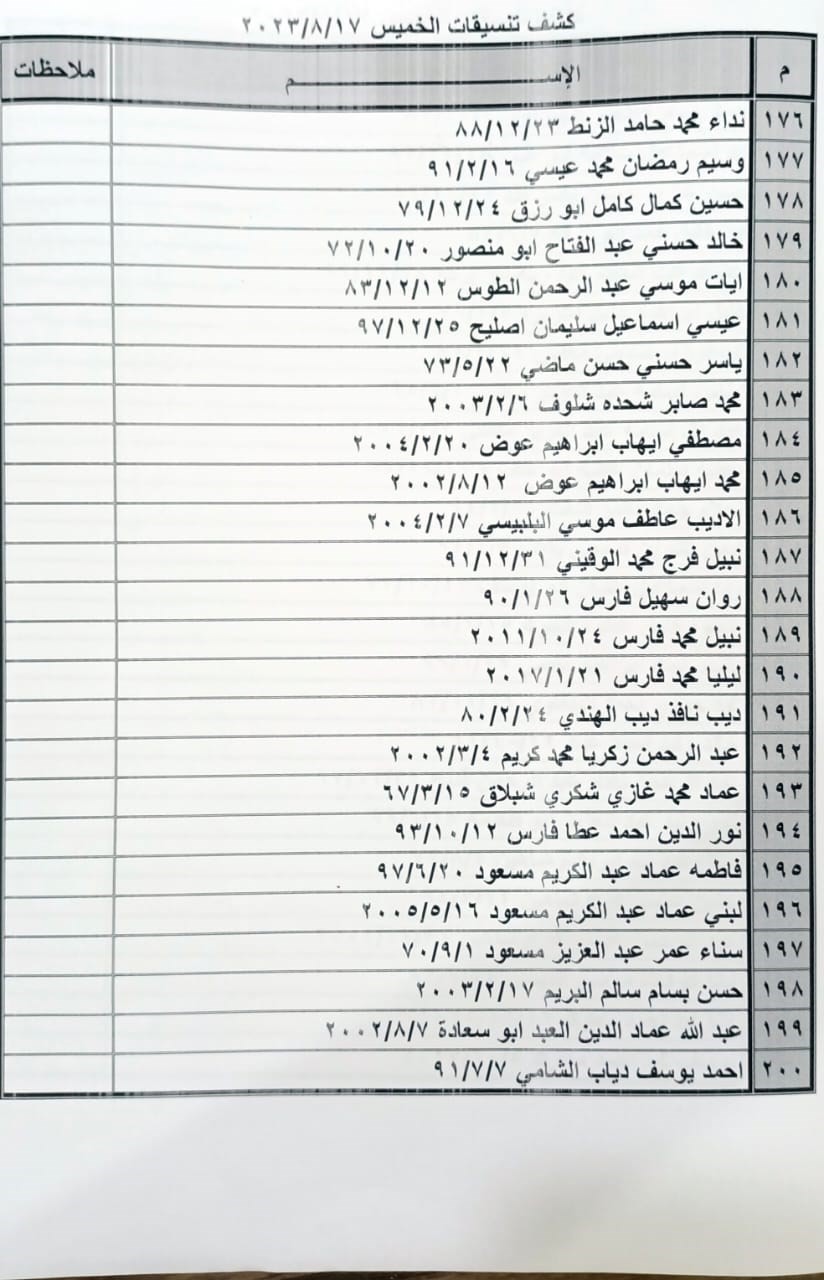 كشف تنسيقات الخميس ٢٠٢٣/٨/١٧
م الإســـــم ملاحظات
١٧٦ نداء محمد حامد الزنط ٨٨/١٢/٢٣
١٧٧ وسيم رمضان محمد عيسي ٩١/٢/١٦
١٧٨ حسين كمال كامل ابو رزق ٧٩/١٢/٢٤
١٧٩ خالد حسني عبد الفتاح ابو منصور ٧٢/١٠/٢٠
١٨٠ ايات موسي عبد الرحمن الطوس ٨٣/١٢/١٢
١٨١ عيسي اسماعيل سليمان اصليح ٩٧/١٢/٢٥
١٨٢ ياسر حسني حسن ماضي ٧٣/٥/٢٢
١٨٣ محمد صابر شحده شلوف ٢٠٠٣/٢/٦
١٨٤ مصطفي ايهاب ابراهيم عوض ٢٠٠٤/٢/٢٠
١٨٥ محمد ايهاب ابراهيم عوض ٢٠٠٢/٨/١٢
١٨٦ الاديب عاطف موسي البلبيسي ٢٠٠٤/٢/٧
١٨٧ نبيل فرج محمد الوقيني ٩١/١٢/٣١
١٨٨ روان سهيل فارس ٩٠/١/٢٦
١٨٩ نبيل محمد فارس ٢٠١١/١٠/٢٤
١٩٠ ليليا محمد فارس ٢٠١٧/١/٢١
١٩١ ديب نافذ ديب الهندي ٨٠/٢/٢٤
١٩٢ عبد الرحمن زكريا محمد كريم ٢٠٠٢/٣/٤
١٩٣ عماد محمد غازي شكري شبلاق ٦٧/٣/١٥
١٩٤ نور الدين احمد عطا فارس ٩٣/١٠/١٢
١٩٥ فاطمه عماد عبد الكريم مسعود ٩٧/٦/٢٠
١٩٦ لبني عماد عبد الكريم مسعود ٢٠٠٥/٥/١٦
١٩٧ سناء عمر عبد العزيز مسعود ٧٠/٩/١
١٩٨ حسن بسام سالم البريم ٢٠٠٣/٢/١٧
١٩٩ عبد الله عماد الدين العبد ابو سعادة ٢٠٠٢/٨/٧
٢٠٠ احمد يوسف دياب الشامي ٩١/٧/٧